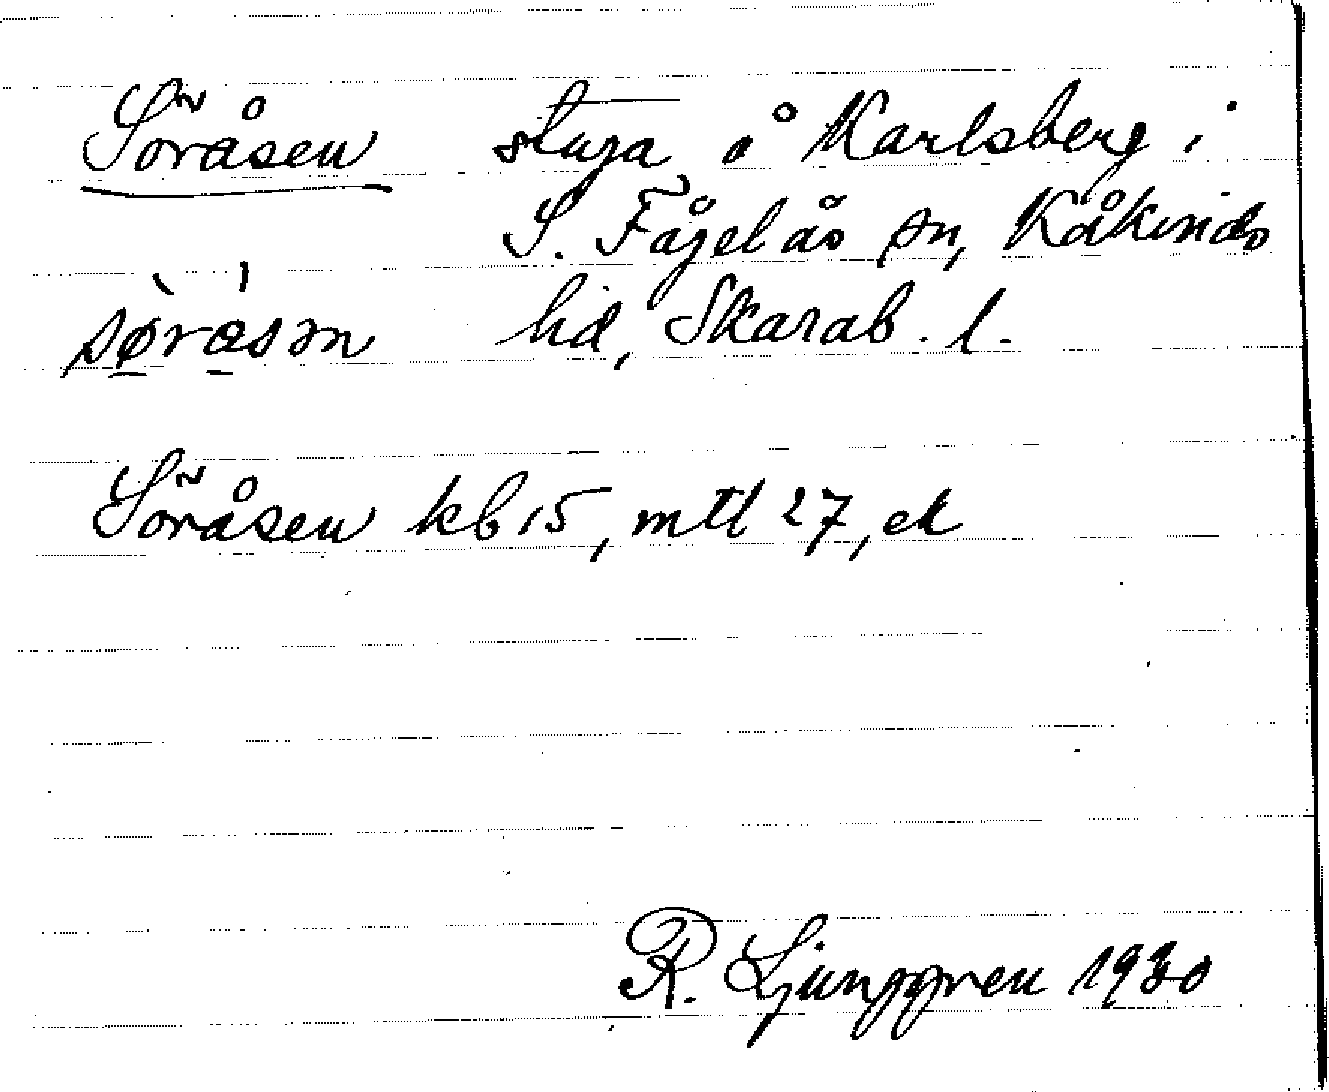 Söråsen stuga å Karlsberg i
S. Fågelås sn, Kåkinds
sø̀rǻsən hd, Skarab. l.
Söråsen kb 15, mtl 27, ek
R. Ljunggren 1930